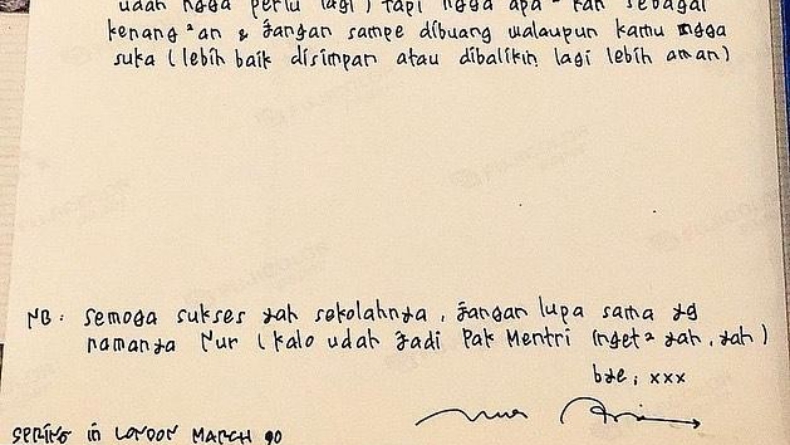 udah ngga perlu lagi) tapi ngga apa² kan sebagai
kenang²an & jangan sampe dibuang walaupun kamu ngga
suka (lebih baik disimpan atau dibalikin lagi lebih aman)
NB: semoga sukses yah sekolahnya, jangan lupa sama yg
namanya Nur (kalo udah jadi Pak Mentri inget² yah, yah)
bye, xxx
SPRING in LONDON MARCH 90